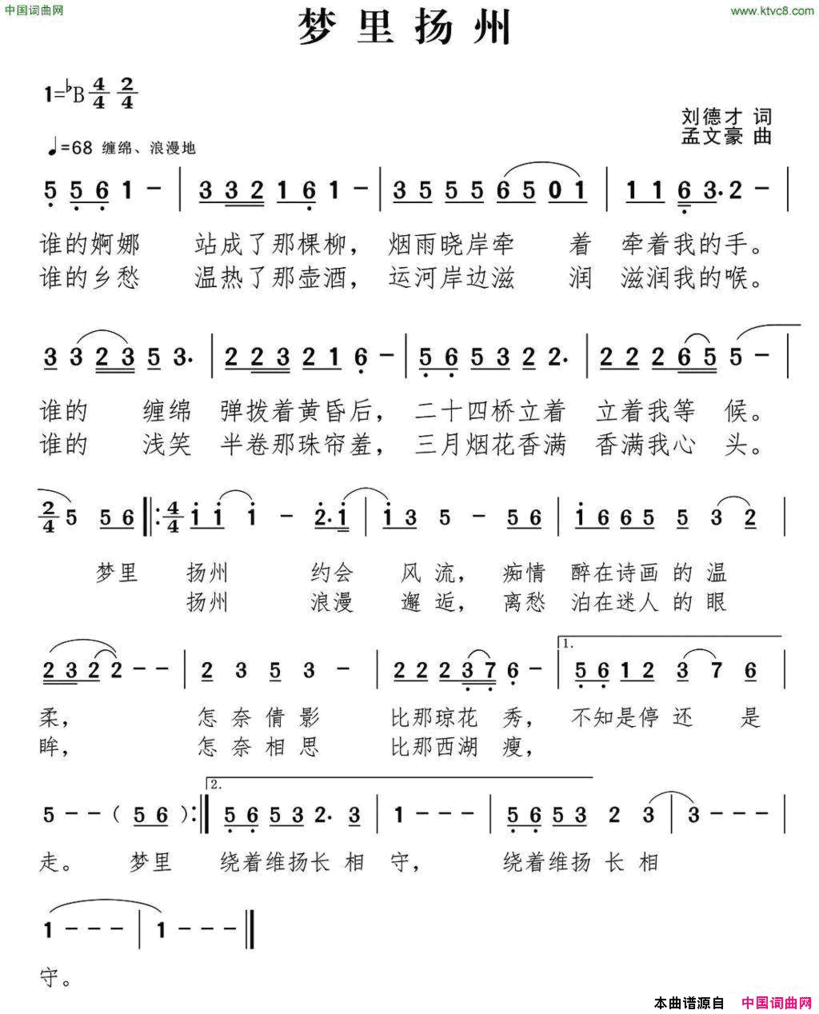 中国词曲网 www.ktvc8.com
梦里扬州
1=♭B 4/4 2/4
刘德才 词
♩=68 缠绵、浪漫地 孟文豪 曲
5 5 6 1 - | 3 3 2 1 6 1 - | 3 5 5 5 6 5 0 1 | 1 1 6 3· 2 - |
谁的婀娜 站成了那棵柳， 烟雨晓岸牵 着 牵着我的手。
谁的乡愁 温热了那壶酒， 运河岸边滋 润 滋润我的喉。
3 3 2 3 5 3· | 2 2 3 2 1 6 - | 5 6 5 3 2 2· | 2 2 2 6 5 5 - |
谁的 缠绵 弹拨着黄昏后， 二十四桥立着 立着我等 候。
谁的 浅笑 半卷那珠帘羞， 三月烟花香满 香满我心 头。
2/4 5 5 6 ‖: 4/4 1 1 1 - 2· 1 | 1 3 5 - 5 6 | 1 6 6 5 5 3 2 |
梦里 扬州 约会 风流， 痴情 醉在诗画 的 温
扬州 浪漫 邂逅， 离愁 泊在迷人 的 眼
2 3 2 2 - - | 2 3 5 3 - | 2 2 2 3 7 6 - | 1. 5 6 1 2 3 7 6 |
柔， 怎 奈 倩 影 比那琼花 秀， 不知是停 还 是
眸， 怎 奈 相 思 比那西湖 瘦，
5 - - ( 5 6 ) :‖ 2. 5 6 5 3 2· 3 | 1 - - - | 5 6 5 3 2 3 | 3 - - - |
走。 梦里 绕着维扬长 相 守， 绕着维扬 长 相
1 - - - | 1 - - - ‖
守。
本曲谱源自 中国词曲网